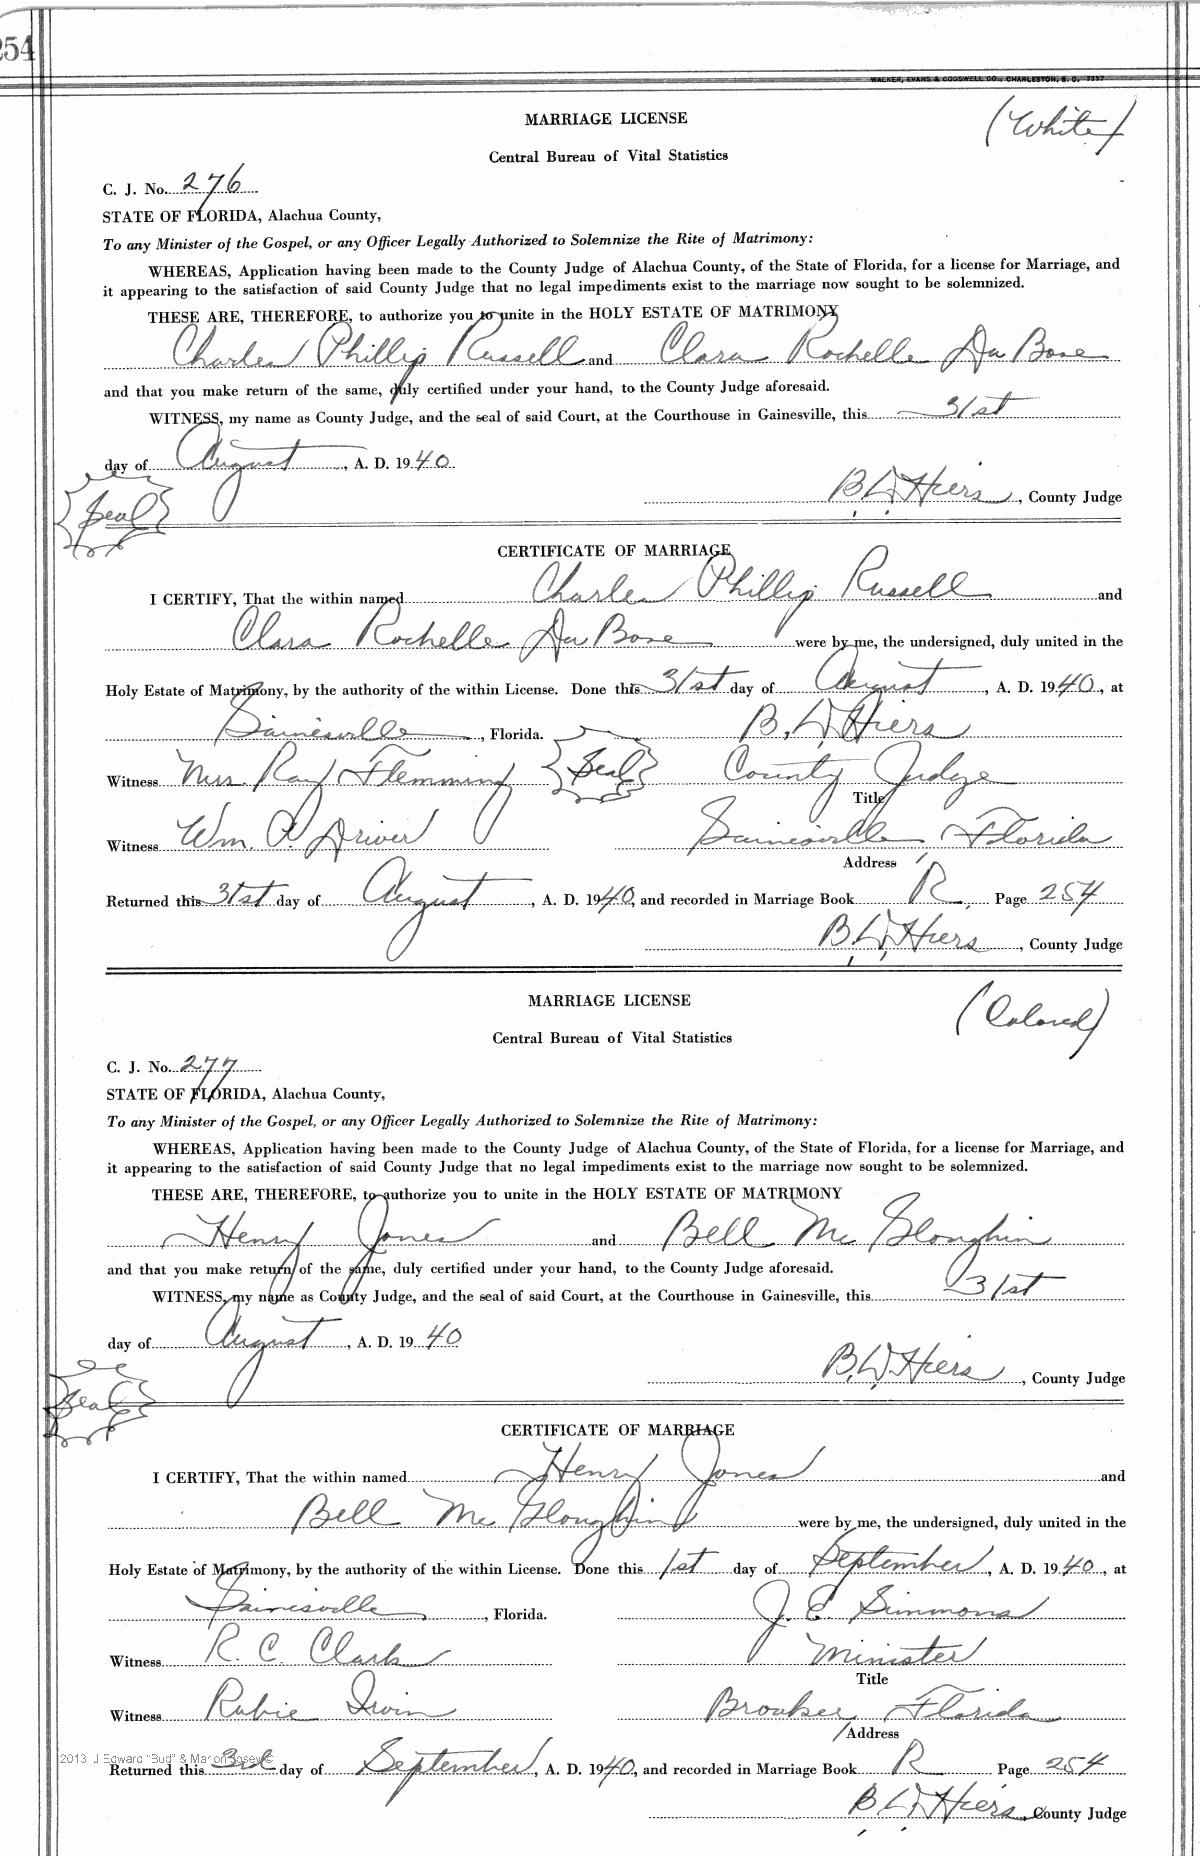 254
WALKER, EVANS & COGSWELL CO., CHARLESTON, S. C.
MARRIAGE LICENSE
(White)
Central Bureau of Vital Statistics
C. J. No. 276
STATE OF FLORIDA, Alachua County,
To any Minister of the Gospel, or any Officer Legally Authorized to Solemnize the Rite of Matrimony:
WHEREAS, Application having been made to the County Judge of Alachua County, of the State of Florida, for a license for Marriage, and
it appearing to the satisfaction of said County Judge that no legal impediments exist to the marriage now sought to be solemnized.
THESE ARE, THEREFORE, to authorize you to unite in the HOLY ESTATE OF MATRIMONY
Charles Phillip Russell and Clara Rochelle Du Bose
and that you make return of the same, duly certified under your hand, to the County Judge aforesaid.
WITNESS, my name as County Judge, and the seal of said Court, at the Courthouse in Gainesville, this 31st
day of August, A. D. 1940
Seal
B. D. Hiers, County Judge
CERTIFICATE OF MARRIAGE
I CERTIFY, That the within named Charles Phillip Russell and
Clara Rochelle Du Bose were by me, the undersigned, duly united in the
Holy Estate of Matrimony, by the authority of the within License. Done this 31st day of August, A. D. 1940, at
Gainesville, Florida. B. D. Hiers
Witness Mrs. Ray Flemming Seal County Judge
Title
Witness Wm. P. Driver Gainesville, Florida
Address
Returned this 31st day of August, A. D. 1940, and recorded in Marriage Book R. Page 254
B. D. Hiers, County Judge
MARRIAGE LICENSE
(Colored)
Central Bureau of Vital Statistics
C. J. No. 277
STATE OF FLORIDA, Alachua County,
To any Minister of the Gospel, or any Officer Legally Authorized to Solemnize the Rite of Matrimony:
WHEREAS, Application having been made to the County Judge of Alachua County, of the State of Florida, for a license for Marriage, and
it appearing to the satisfaction of said County Judge that no legal impediments exist to the marriage now sought to be solemnized.
THESE ARE, THEREFORE, to authorize you to unite in the HOLY ESTATE OF MATRIMONY
Henry Jones and Bell Mc Gloughin
and that you make return of the same, duly certified under your hand, to the County Judge aforesaid.
WITNESS, my name as County Judge, and the seal of said Court, at the Courthouse in Gainesville, this 31st
day of August, A. D. 1940
B. D. Hiers, County Judge
Seal
CERTIFICATE OF MARRIAGE
I CERTIFY, That the within named Henry Jones and
Bell Mc Gloughin were by me, the undersigned, duly united in the
Holy Estate of Matrimony, by the authority of the within License. Done this 1st day of September, A. D. 1940, at
Gainesville, Florida. J. E. Simmons
Witness R. C. Clark Minister
Title
Witness Rubie Irvin Brooker, Florida
Address
2013 J Edward "Bud" & Marion Josey ©
Returned this 3rd day of September, A. D. 1940, and recorded in Marriage Book R Page 254
B. D. Hiers, County Judge